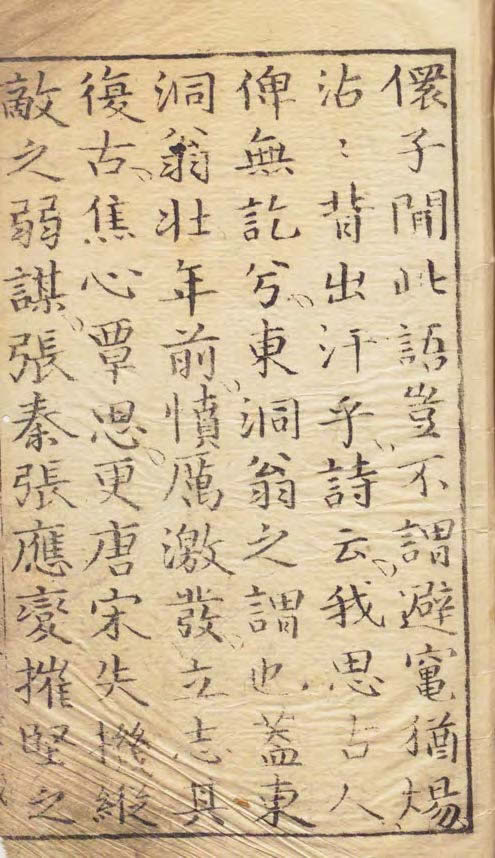 儇子聞此語豈不謂避竈猶煬
沾〻背出汗乎詩云我思古人
俾無訖兮東洞翁之謂也蓋東
洞翁壯年前憤厲激發立志具
復古焦心覃思更唐宋失機縱
敵之弱謀張秦張應變摧堅之